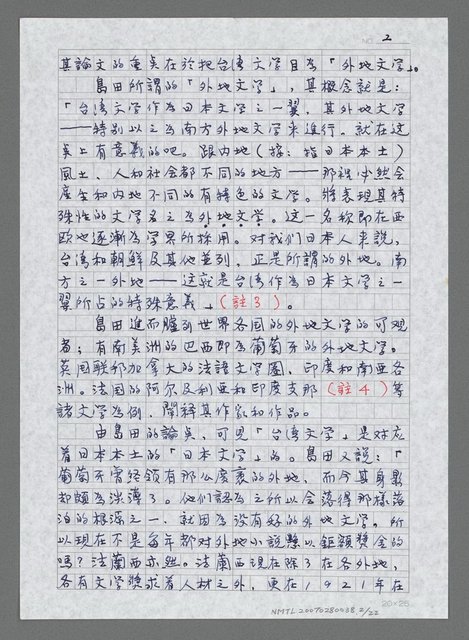 NO. 2
其論文的重點在於把台湾文学目為「外地文学」。
島田所謂的「外地文学」，其概念就是：
「台湾文学作為日本文学之一翼，其外地文学
——特別以之為南方外地文学来進行。就在这
点上有意義的吧。跟内地（按：指日本本土）
風土、人和社会都不同的地方——那裡必然会
産生和内地不同的有特色的文学。将表現其特
殊性的文学名之為外地文学。这一名称即在西
欧也逐漸為学界所採用。对我们日本人来説，
台湾和朝鮮及其他並列，正是所謂的外地。南
方之一外地——这就是台湾作為日本文学之一
翼所占的特殊意義」（註3）。
島田進而臚列世界各国的外地文学的可观
者；有南美洲的巴西即為葡萄牙的外地文学。
英国联邦加拿大的法語文学圈，印度和南亜各
洲。法国的阿尔及利亜和印度支那（註4）等
諸文学為例，闡釋其作家和作品。
由島田的論点，可見「台湾文学」是对应
着日本本土的「日本文学」的。島田又說：「
葡萄牙曾經領有那么廣袤的外地，而今其身影
却頗為淡薄了。他们認為之所以会落得那樣落
泊的根源之一，就因為没有好的外地文学。所
以現在不是每年都对外地小説懸以鉅額奬金的
嗎？法蘭西亦然。法蘭西現在除了在各外地，
各有文学奬求着人材之外，更在1921年在
20×25
NMTL20070280038 2/22